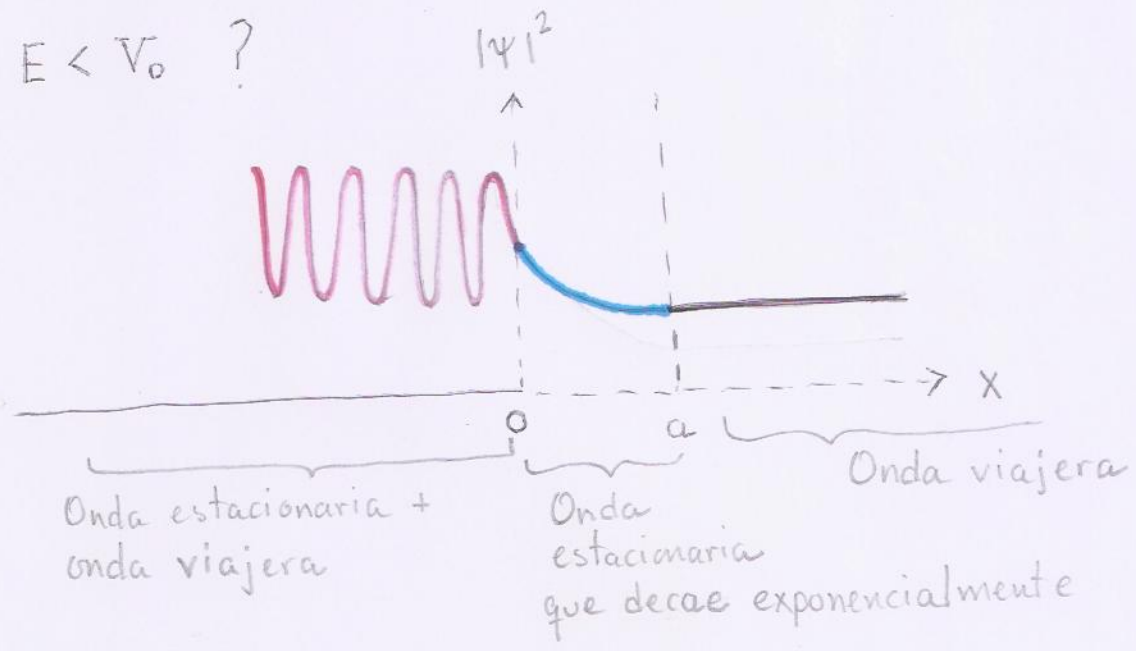 E < V₀ ?
|ψ|²
x
0
a
Onda estacionaria +
onda viajera
Onda
estacionaria
que decae exponencialmente
Onda viajera